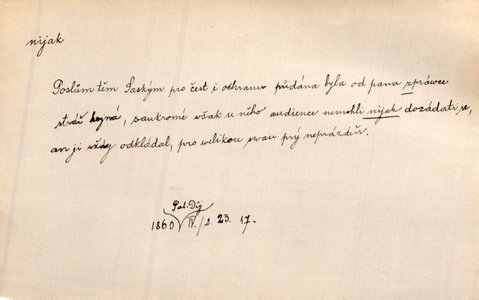 nijak
Poslům těm Saským pro čest i ochranu přidána byla od pana zprávce
stráž hojná, saukromé však u něho audience nemohli nijak dožádati se,
an ji vždy odkládal, pro velikou swau prý neprázdeň.
Pal. Děj
1860 IV./2. 23. 17.